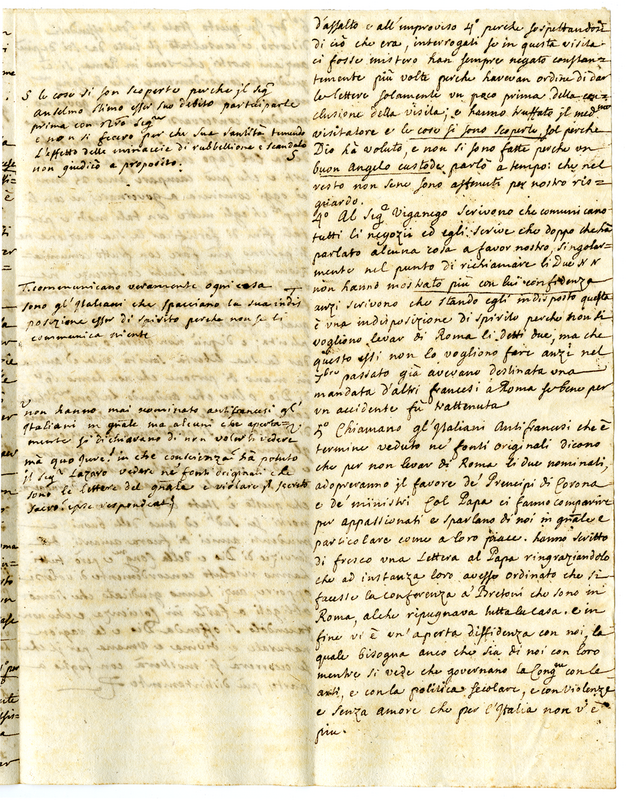 S le cose si son scoperte perche il Sig.r
Anselmo stimo esser suo debito participarle
prima con
e non si fecero per che sua santità temendo
l'effetto delle minaccie di rubbellione e scandalo
non giudicò a proposito.
S
T. communicano veramente ogni cosa
sono gl'Italiani che spacciano la sua indis
posizione esser di spirito perche non se li
communica niente
V
non hanno mai nominato antifrancesi gl'
Italiani in g'nale ma alcuni che aperta=
mente si dichiarano di non volerli vedere
mà quo jure? in che conscienza hà potuto
il Sig.r Lazaro vedere ne' fonti originali che
sono le lettere del g'nale e violare il secreto
sacro? ipse respondeat
d'assalto e all'improviso 4.o perche sospettandosi
di ciò che era, interrogati se in questa visita
ci fosse mistero han sempre negato constan=
temente più volte perche havevan ordine di dar
le lettere solamente un poco prima della con=
clusione della visita; e hanno truffato il med.mo
visitatore e le cose si sono scoperte sol perche
Dio hà voluto, e non si sono fatte perche un
buon Angelo custode parlò a tempo: che nel
resto non sene sono astenuti per nostro ris=
guardo.
4.o Al Sig.r Viganego scrivono che comunicano
tutti li negozii ed egli scrive che doppo che hà
parlato alcuna cosa a favor nostro, singolar=
mente nel punto di richiamare li due NN
non hanno mostrato più con lui confidenza
anzi scrivono che stando egli indisposto questa
è una indisposizione di spirito perche non si
vogliono levar di Roma li detti due, ma che
questo essi non lo vogliono fare anzi nel
7bre passato già avevano destinata una
mandata d'altri francesi a Roma se bene per
un accidente fù trattenuta
5.o Chiamano gl'Italiani Antifrancesi che è
termine veduto ne' fonti originali dicono
che per non levar di Roma li due nominati,
adopreranno il favore de' Prencipi di Corona
e de' ministri Col Papa ci fanno comparire
per appassionati e sparlano di noi in g'nale e
particolare come a loro piace. hanno scritto
di fresco una Lettera al Papa ringraziandolo
che ad instanza loro avesse ordinato che si
facesse la conferenza a Bretoni che sono in
Roma, al che ripugnava tutta la casa. e in
fine vi è un'aperta diffidenza con noi, la
quale bisogna anco che sia di noi con loro
mentre si vede che governano la Cong.ne con le
arti, e con la politica secolare, e con violenze
e senza amore che per l'Italia non v'è
più.